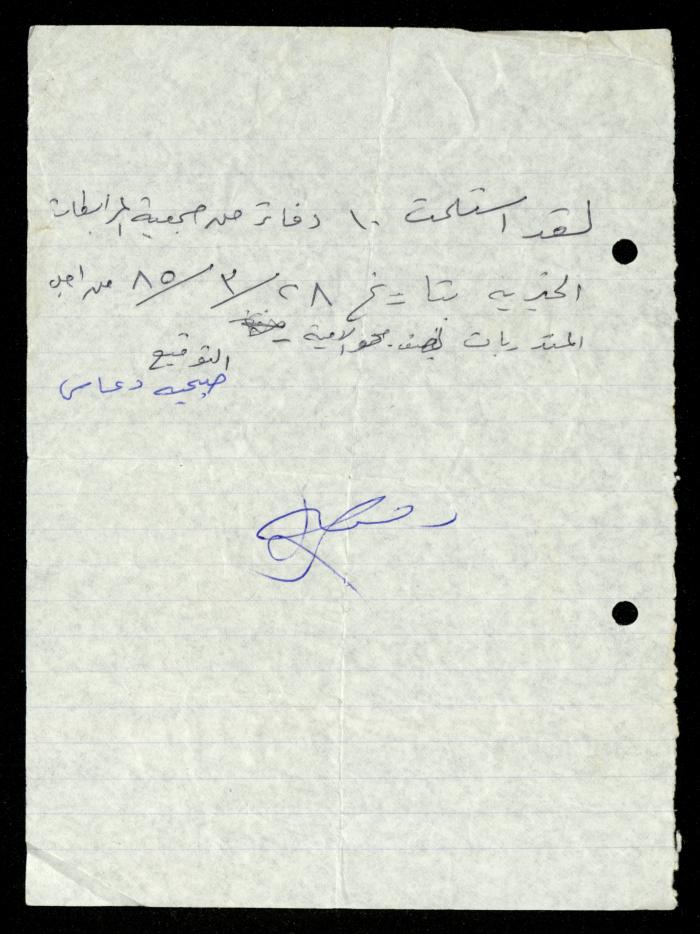 لقد استلمت ١٠ دفاتر من جمعية المرابطات
الخيريه بتاريخ ٢٨/٣/٨٥ من اجل
المتدربات بصف محو الامية
التوقيع
صبحيه دعاس